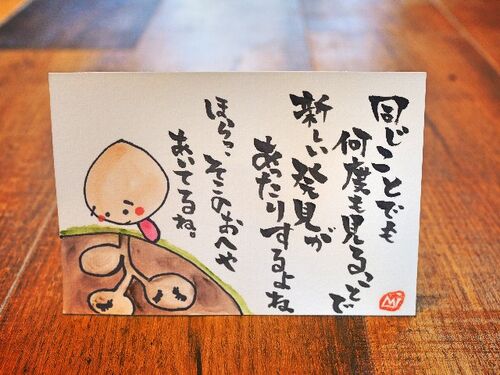 同じことでも
何度も見ることで
新しい発見が
あったりするよね
ほらっ そこのおへや
あいてるね。
M